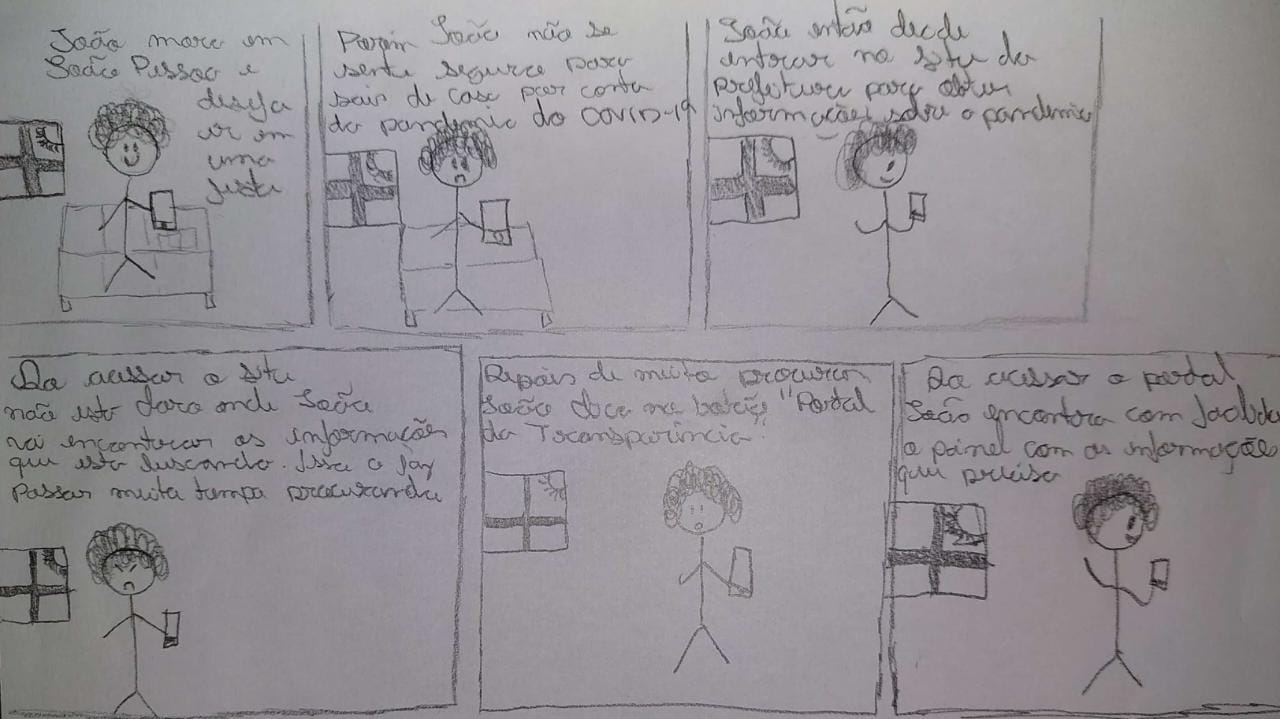 João mora em
João Pessoa e
deseja
ir em
uma
festa
Porém João não se
sente seguro para
sair de casa por conta
da pandemia do COVID-19
João então decide
entrar no site da
prefeitura para obter
informações sobre a pandemia
Ao acessar o site
não esta claro onde João
vai encontrar as informações
que esta buscando. Isso o faz
passar muito tempo procurando
Depois de muito procurar
João clica no botão "Portal
da Transparência"
Ao acessar o portal
João encontra com facilida
o painel com as informações
que precisa